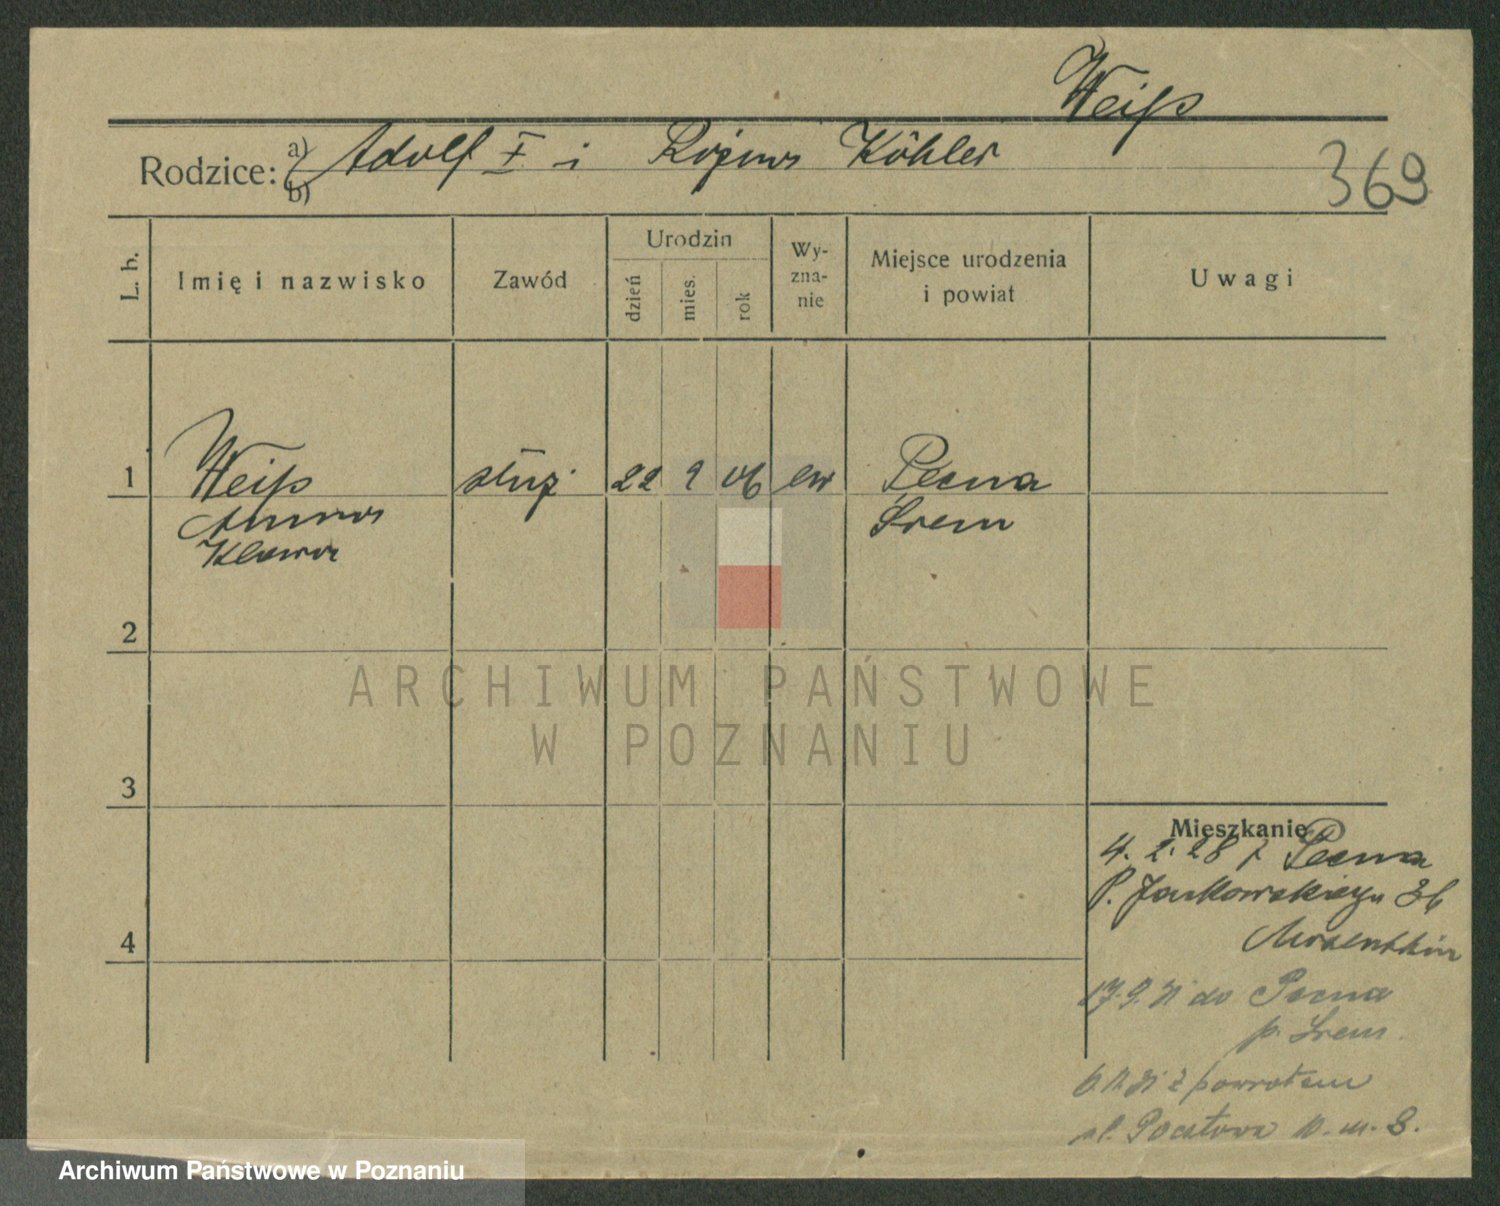 Weiß
Rodzice: a) Adolf I i Rozyna Köhler
b)
369
L. b.
Imię i nazwisko
Zawód
Urodzin
dzień
mies.
rok
Wy-
zna-
nie
Miejsce urodzenia
i powiat
Uwagi
1 Weiß służ. 22 2 06 ew Pecna
Anna Śrem
Klara
2
3
4
Mieszkanie
4. 2. 28 z Pecna
P. Jackowskiego 36
17. 9. 31 do Pecna
p. Śrem.
z powrotem
ul. Pocztowa 10 m. 8.
ARCHIWUM PAŃSTWOWE
W POZNANIU
Archiwum Państwowe w Poznaniu